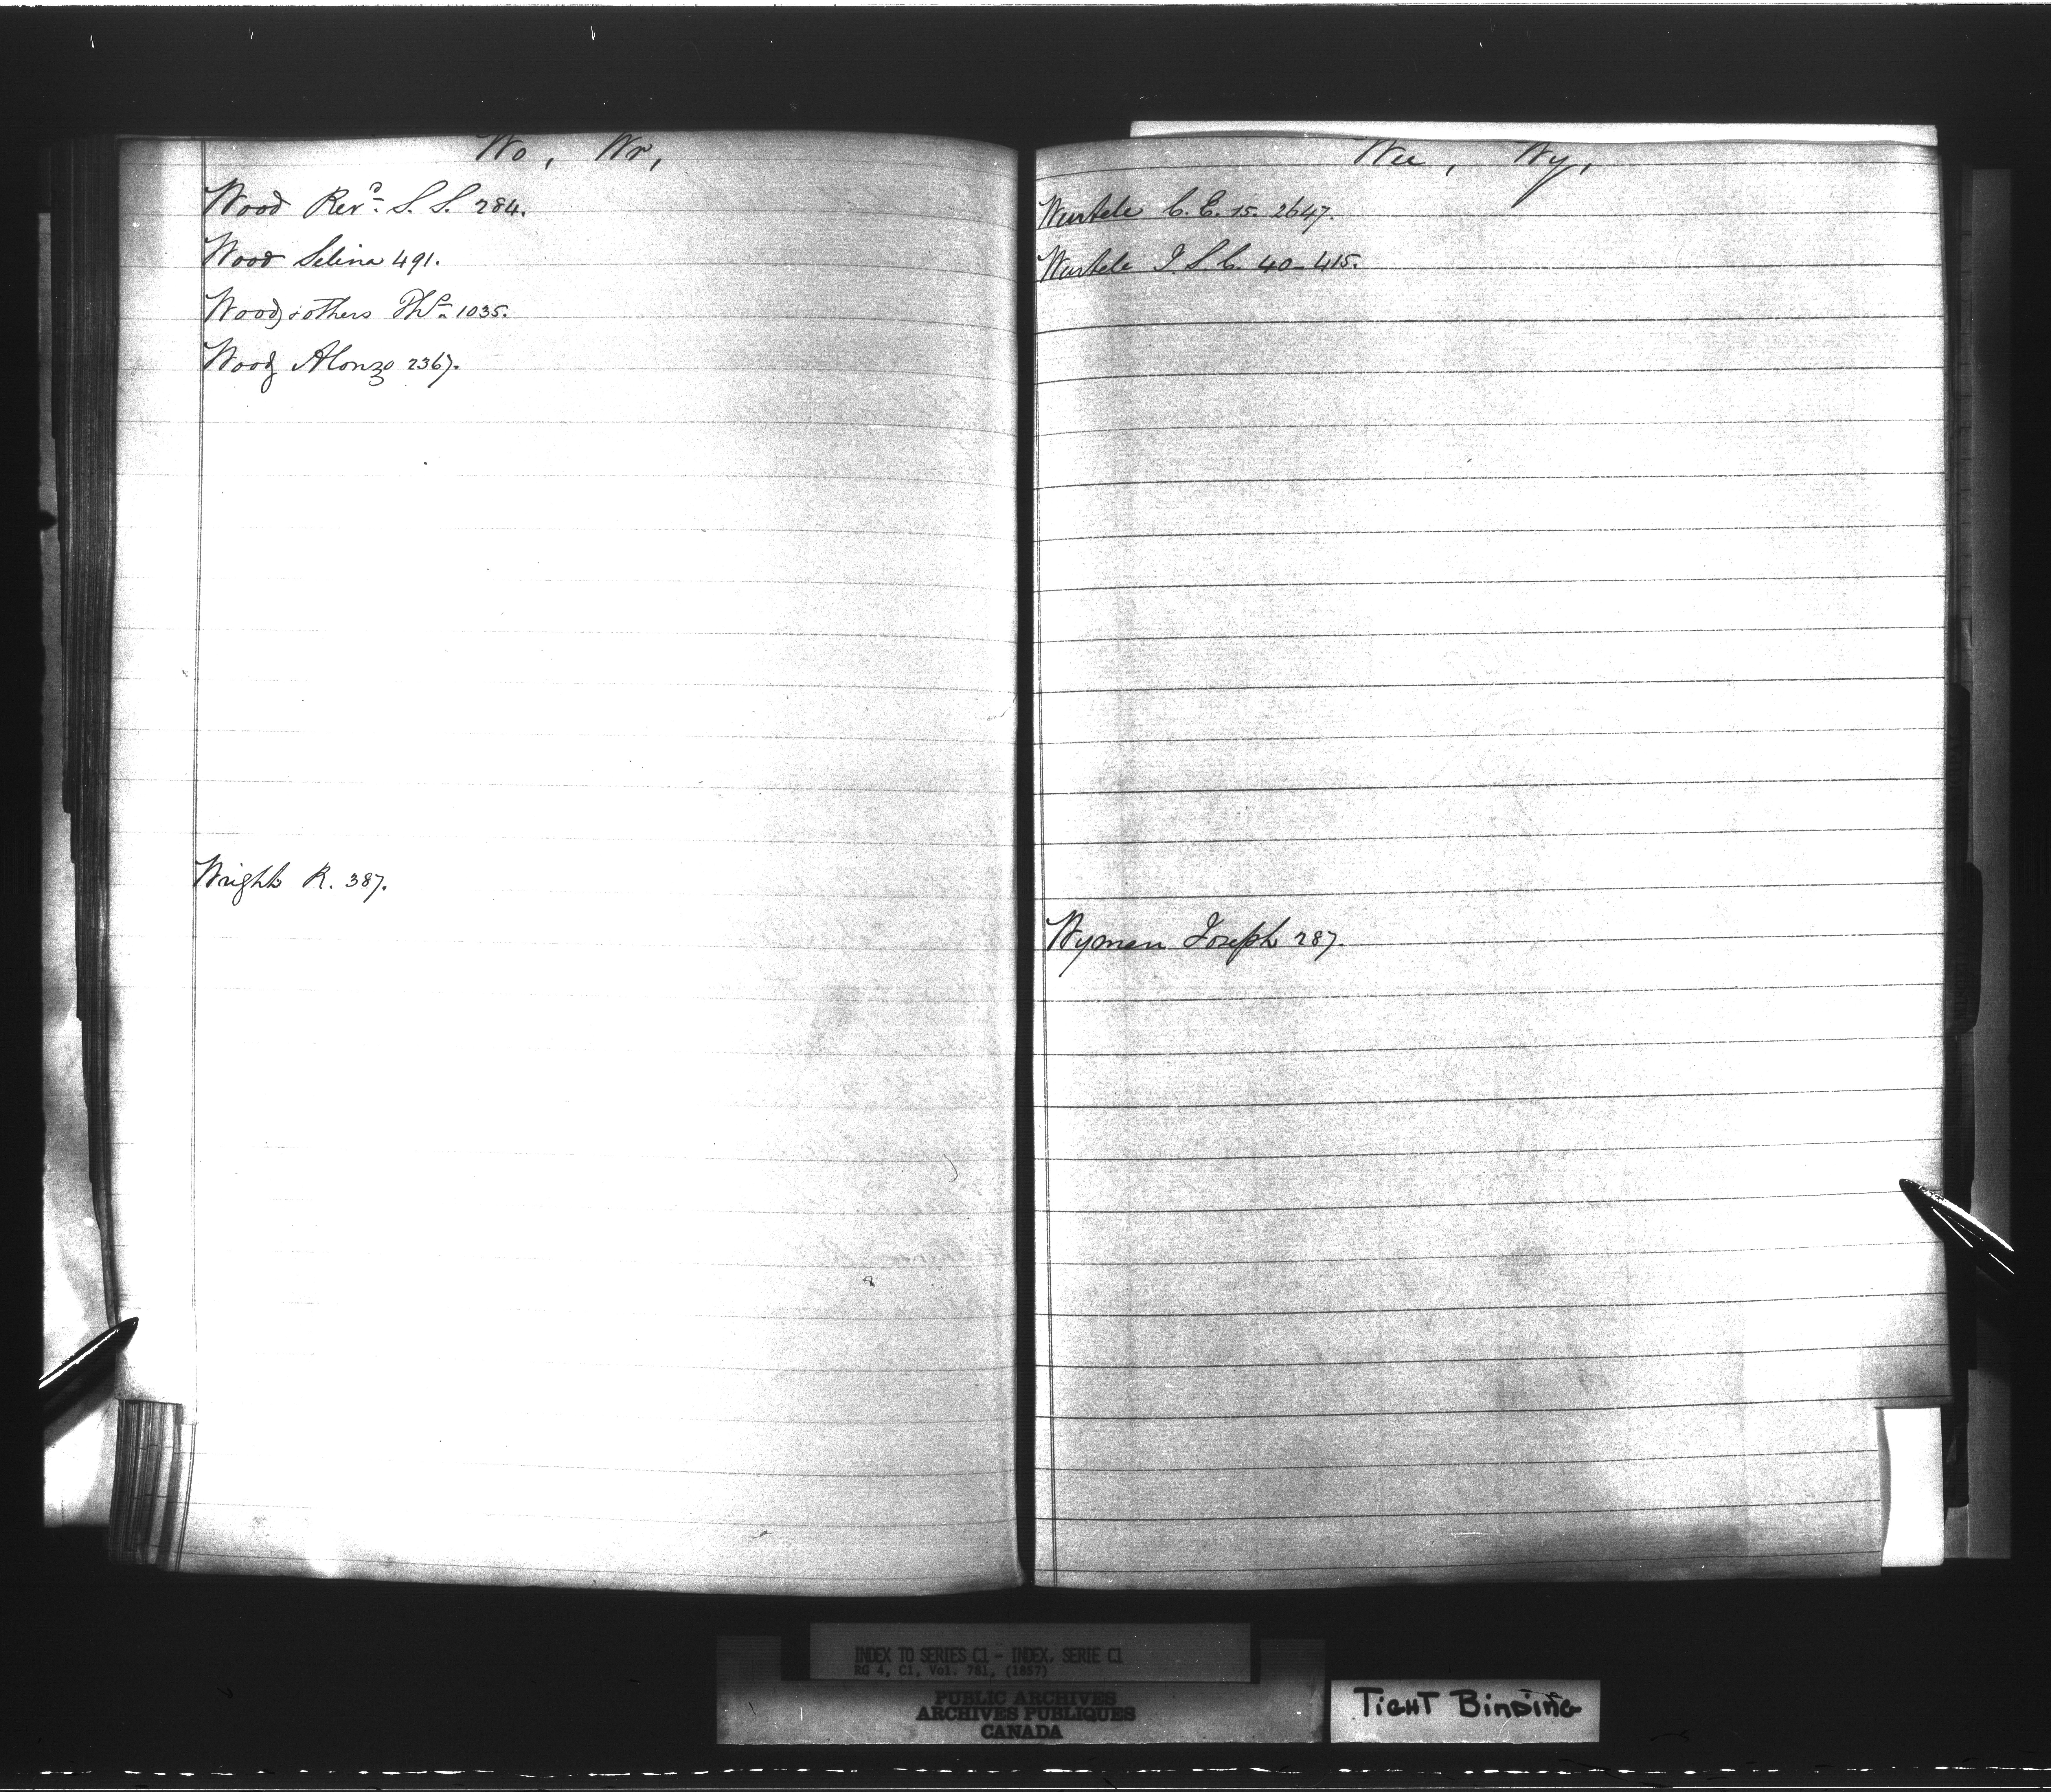 Wo, Wr,
Wood Revd. S. S. 284.
Wood Selina 491.
Wood, & others Ths. 1035.
Wood, Alonzo 2367.
Wright R. 387.
Wu, Wy,
Wurtele C. E. 15. 2647.
Wurtele J. S. C. 40-415.
Wyman Joseph 287.
INDEX TO SERIES C1 - INDEX, SERIE C1
RG 4, C1, Vol. 781, (1857)
PUBLIC ARCHIVES
ARCHIVES PUBLIQUES
CANADA
TIGHT BINDING